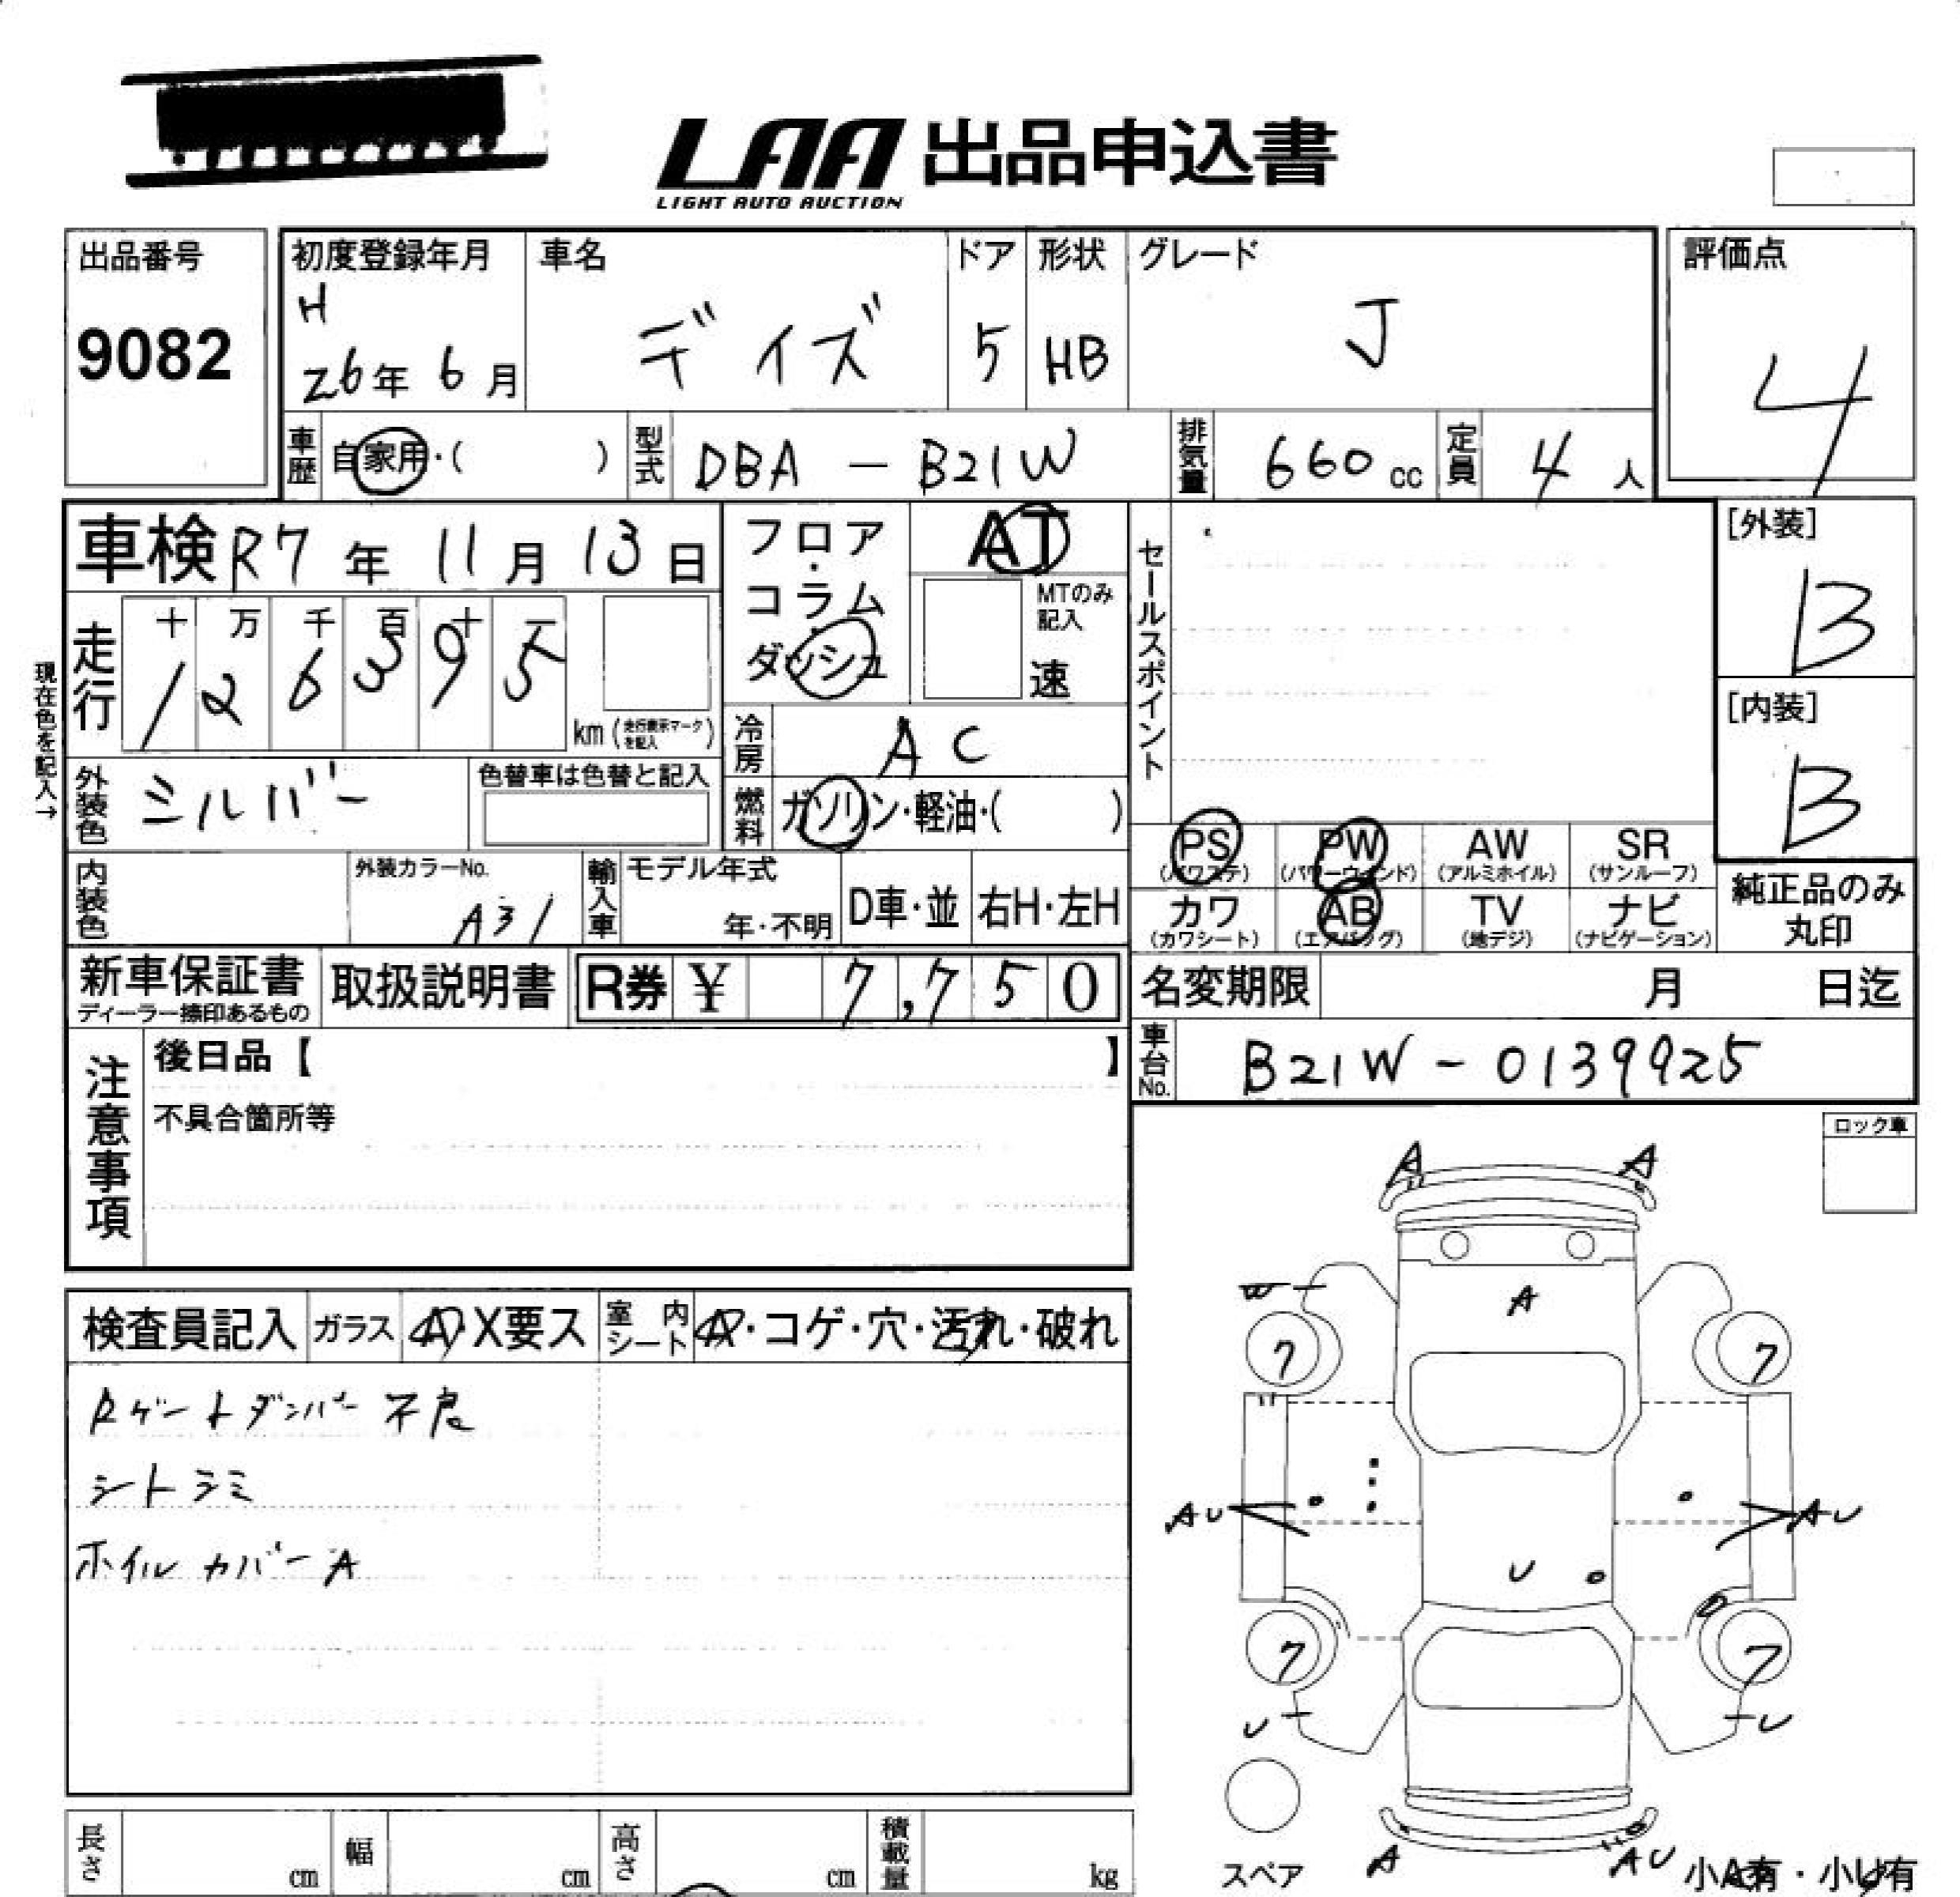 LAA 出品申込書
LIGHT AUTO AUCTION
出品番号
9082
初度登録年月
H
26年 6月
車名
デイズ
ドア
5
形状
HB
グレード
J
評価点
4
車歴
自家用・( )
型式
DBA - B21W
排気量
660 cc
定員
4 人
車検 R7年 11月 13日
フロア・コラム・ダッシュ
AT
MTのみ記入
速
セールスポイント
[外装]
B
[内装]
B
現在色を記入→
走行
十 万 千 百 十 一
1 2 6 3 9 5
km (走行表示マークを記入)
冷房
AC
外装色
シルバー
色替車は色替と記入
燃料
ガソリン・軽油・( )
内装色
外装カラーNo.
A31
輸入車
モデル年式
年・不明
D車・並
右H・左H
PS (パワステ)
PW (パワーウインド)
AW (アルミホイル)
SR (サンルーフ)
カワ (カワシート)
AB (エアバッグ)
TV (地デジ)
ナビ (ナビゲーション)
純正品のみ丸印
新車保証書
ディーラー捺印あるもの
取扱説明書
R券 ¥ 7,750
名変期限 月 日迄
注意事項
後日品【 】
不具合箇所等
車台No.
B21W - 0139925
ロック車
検査員記入
ガラス
A X要ス
室内シート
A・コゲ・穴・汚れ・破れ
Rゲートダンパー不良
シトシミ
ホイルカバーA
A A
W
A
7 7
AU AU
U
7 7
U U
A AU
スペア
小A有・小U有
長さ cm
幅 cm
高さ cm
積載量 kg